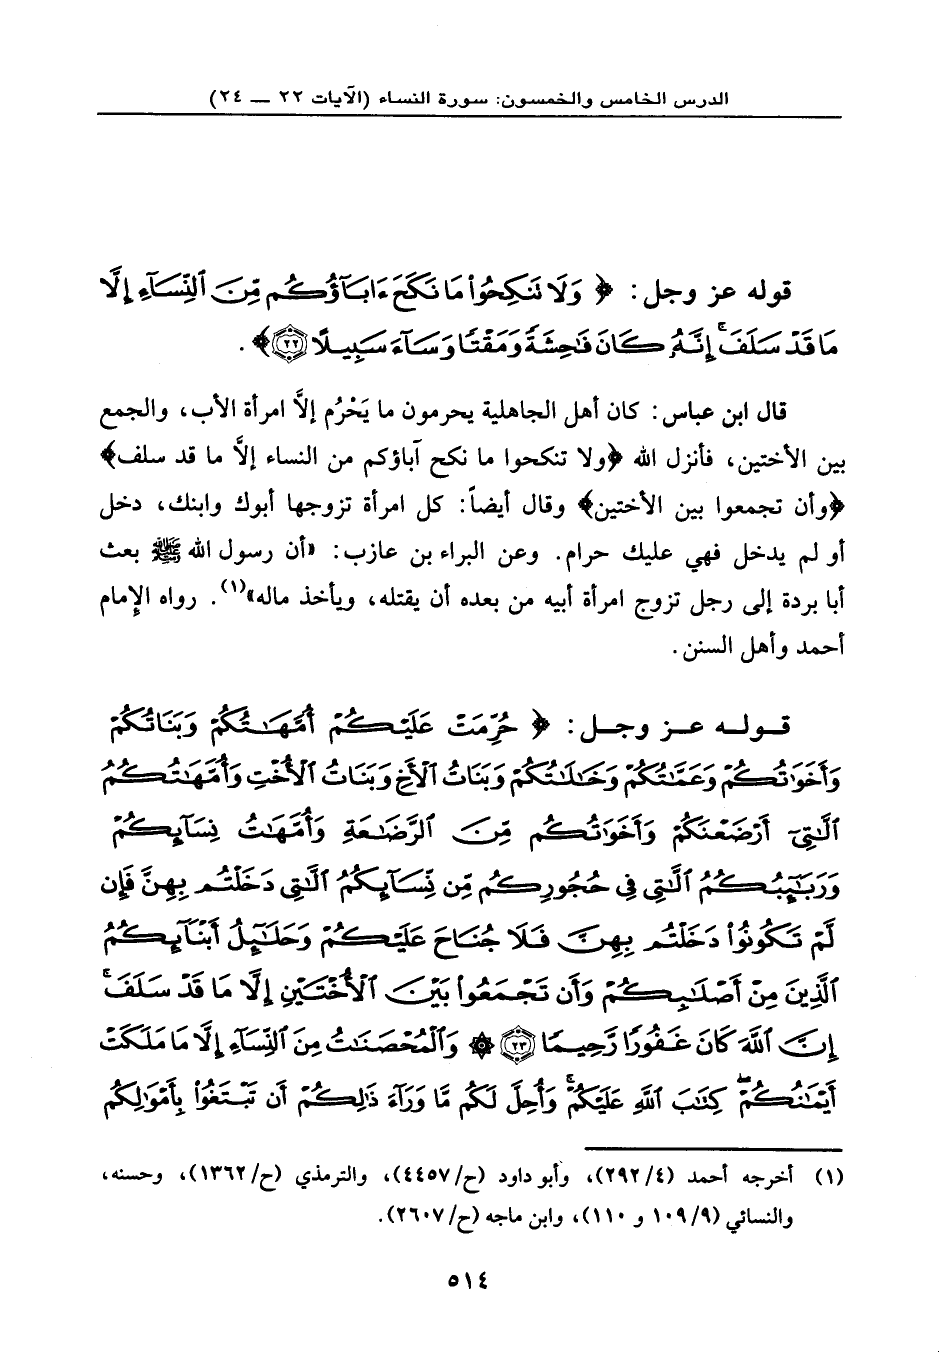 الدرس الخامس والخمسون: سورة النساء (الآيات ٢٢ ـ ٢٤)
قوله عز وجل: ﴿ وَلَا تَنكِحُوا۟ مَا نَكَحَ ءَابَآؤُكُم مِّنَ ٱلنِّسَآءِ إِلَّا
مَا قَدْ سَلَفَ ۚ إِنَّهُۥ كَانَ فَٰحِشَةً وَمَقْتًا وَسَآءَ سَبِيلًا ٢٢﴾.
قال ابن عباس: كان أهل الجاهلية يحرمون ما يَحْرُم إلاَّ امرأة الأب، والجمع
بين الأختين، فأنزل الله ﴿ولا تنكحوا ما نكح آباؤكم من النساء إلاَّ ما قد سلف﴾
﴿وأن تجمعوا بين الأختين﴾ وقال أيضاً: كل امرأة تزوجها أبوك وابنك، دخل
أو لم يدخل فهي عليك حرام. وعن البراء بن عازب: «أن رسول الله ﷺ بعث
أبا بردة إلى رجل تزوج امرأة أبيه من بعده أن يقتله، ويأخذ ماله»(١). رواه الإمام
أحمد وأهل السنن.
قوله عز وجل: ﴿ حُرِّمَتْ عَلَيْكُمْ أُمَّهَٰتُكُمْ وَبَنَاتُكُمْ
وَأَخَوَٰتُكُمْ وَعَمَّٰتُكُمْ وَخَٰلَٰتُكُمْ وَبَنَاتُ ٱلْأَخِ وَبَنَاتُ ٱلْأُخْتِ وَأُمَّهَٰتُكُمُ
ٱلَّٰتِىٓ أَرْضَعْنَكُمْ وَأَخَوَٰتُكُم مِّنَ ٱلرَّضَٰعَةِ وَأُمَّهَٰتُ نِسَآئِكُمْ
وَرَبَٰٓئِبُكُمُ ٱلَّٰتِى فِى حُجُورِكُم مِّن نِّسَآئِكُمُ ٱلَّٰتِى دَخَلْتُم بِهِنَّ فَإِن
لَّمْ تَكُونُوا۟ دَخَلْتُم بِهِنَّ فَلَا جُنَاحَ عَلَيْكُمْ وَحَلَٰٓئِلُ أَبْنَآئِكُمُ
ٱلَّذِينَ مِنْ أَصْلَٰبِكُمْ وَأَن تَجْمَعُوا۟ بَيْنَ ٱلْأُخْتَيْنِ إِلَّا مَا قَدْ سَلَفَ ۗ
إِنَّ ٱللَّهَ كَانَ غَفُورًا رَّحِيمًا ٢٣ ۞ وَٱلْمُحْصَنَٰتُ مِنَ ٱلنِّسَآءِ إِلَّا مَا مَلَكَتْ
أَيْمَٰنُكُمْ ۖ كِتَٰبَ ٱللَّهِ عَلَيْكُمْ ۚ وَأُحِلَّ لَكُم مَّا وَرَآءَ ذَٰلِكُمْ أَن تَبْتَغُوا۟ بِأَمْوَٰلِكُم
(١) أخرجه أحمد (٤/ ٢٩٢)، وأبو داود (ح/ ٤٤٥٧)، والترمذي (ح/ ١٣٦٢)، وحسنه،
والنسائي (٩/ ١٠٩ و ١١٠)، وابن ماجه (ح/ ٢٦٠٧).
٥١٤